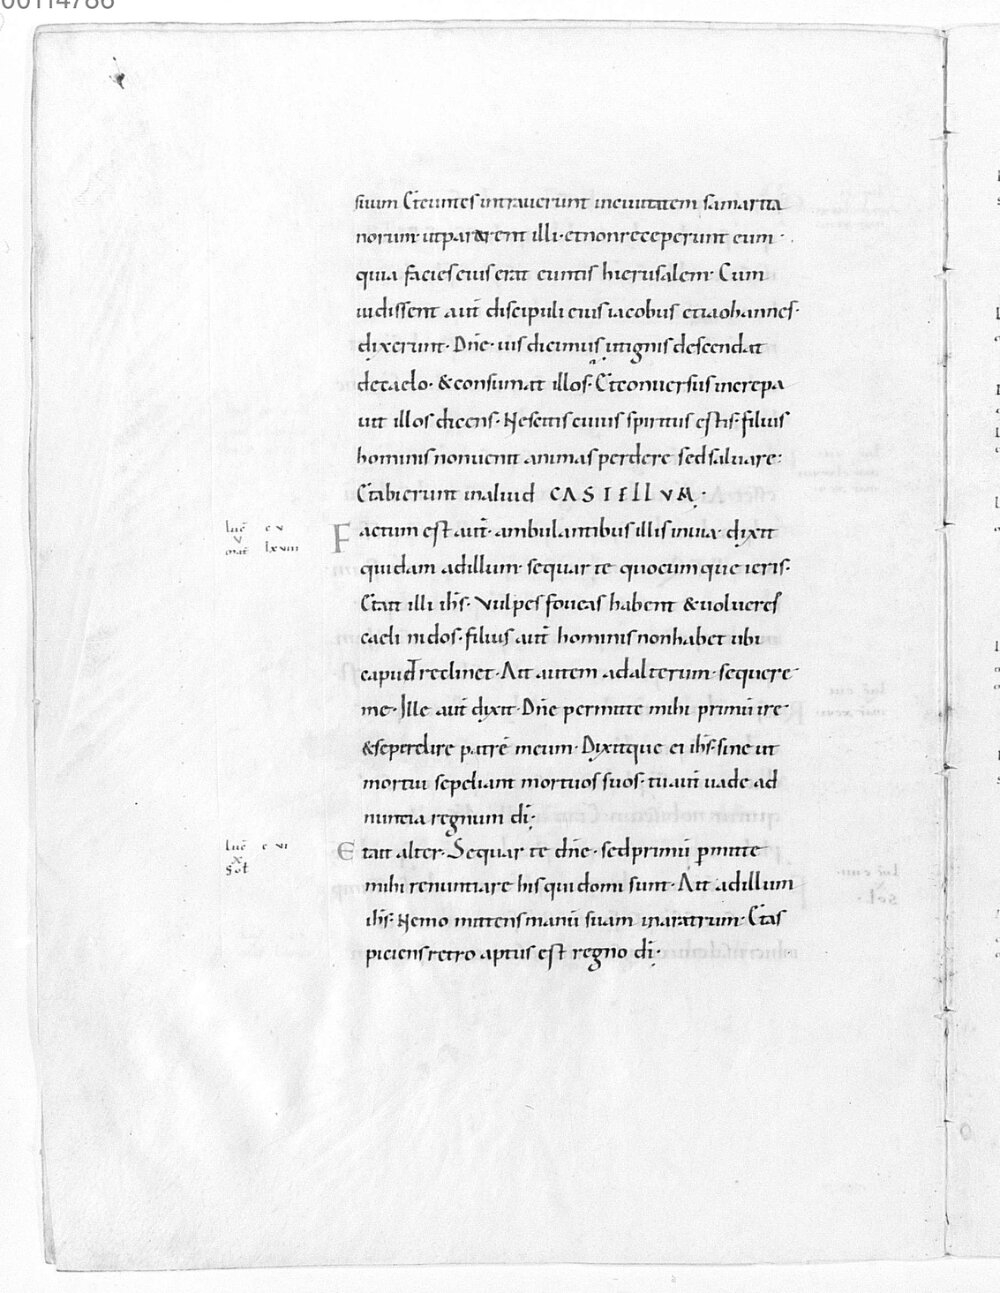 00114786
suum Et euntes intrauerunt in ciuitatem samarita
norum ut pararent illi · et non receperunt eum ·
quia facies eius erat euntis hierusalem · Cum
uidissent aut̄ discipuli eius iacobus et iaohannes ·
dixerunt · Dn̄e · uis dicimus ut ignis descendat
de caelo · & consumat illos · Et conuersus increpa
uit illos dicens · Nescitis cuius spiritus estis · filius
hominis non uenit animas perdere sed saluare :
Et abierunt in aliud CASTELLVM ·
luc̄ cv Factum est aut̄ · ambulantibus illis in uia · dixit
v
mat̄ lxviii quidam ad illum · sequar te quocumque ieris ·
Et ait illi ih̄s · Vulpes foueas habent & uolucres
caeli nidos · filius aut̄ hominis non habet ubi
capud reclinet · Ait autem ad alterum · sequere
me · Ille aut̄ dixit · Dn̄e permitte mihi primū ire ·
& sepelire patrē meum · Dixitque ei ih̄s · sine ut
mortui sepeliant mortuos suos · tu aut̄ uade ad
nuntia regnum dī ·
luc̄ cvi Et ait alter · Sequar te dn̄e · sed primū p̄mitte
x
sol̄ mihi renuntiare his qui domi sunt · Ait ad illum
ih̄s · Nemo mittens manū suam in aratrum · Et as
piciens retro aptus est regno dī ·